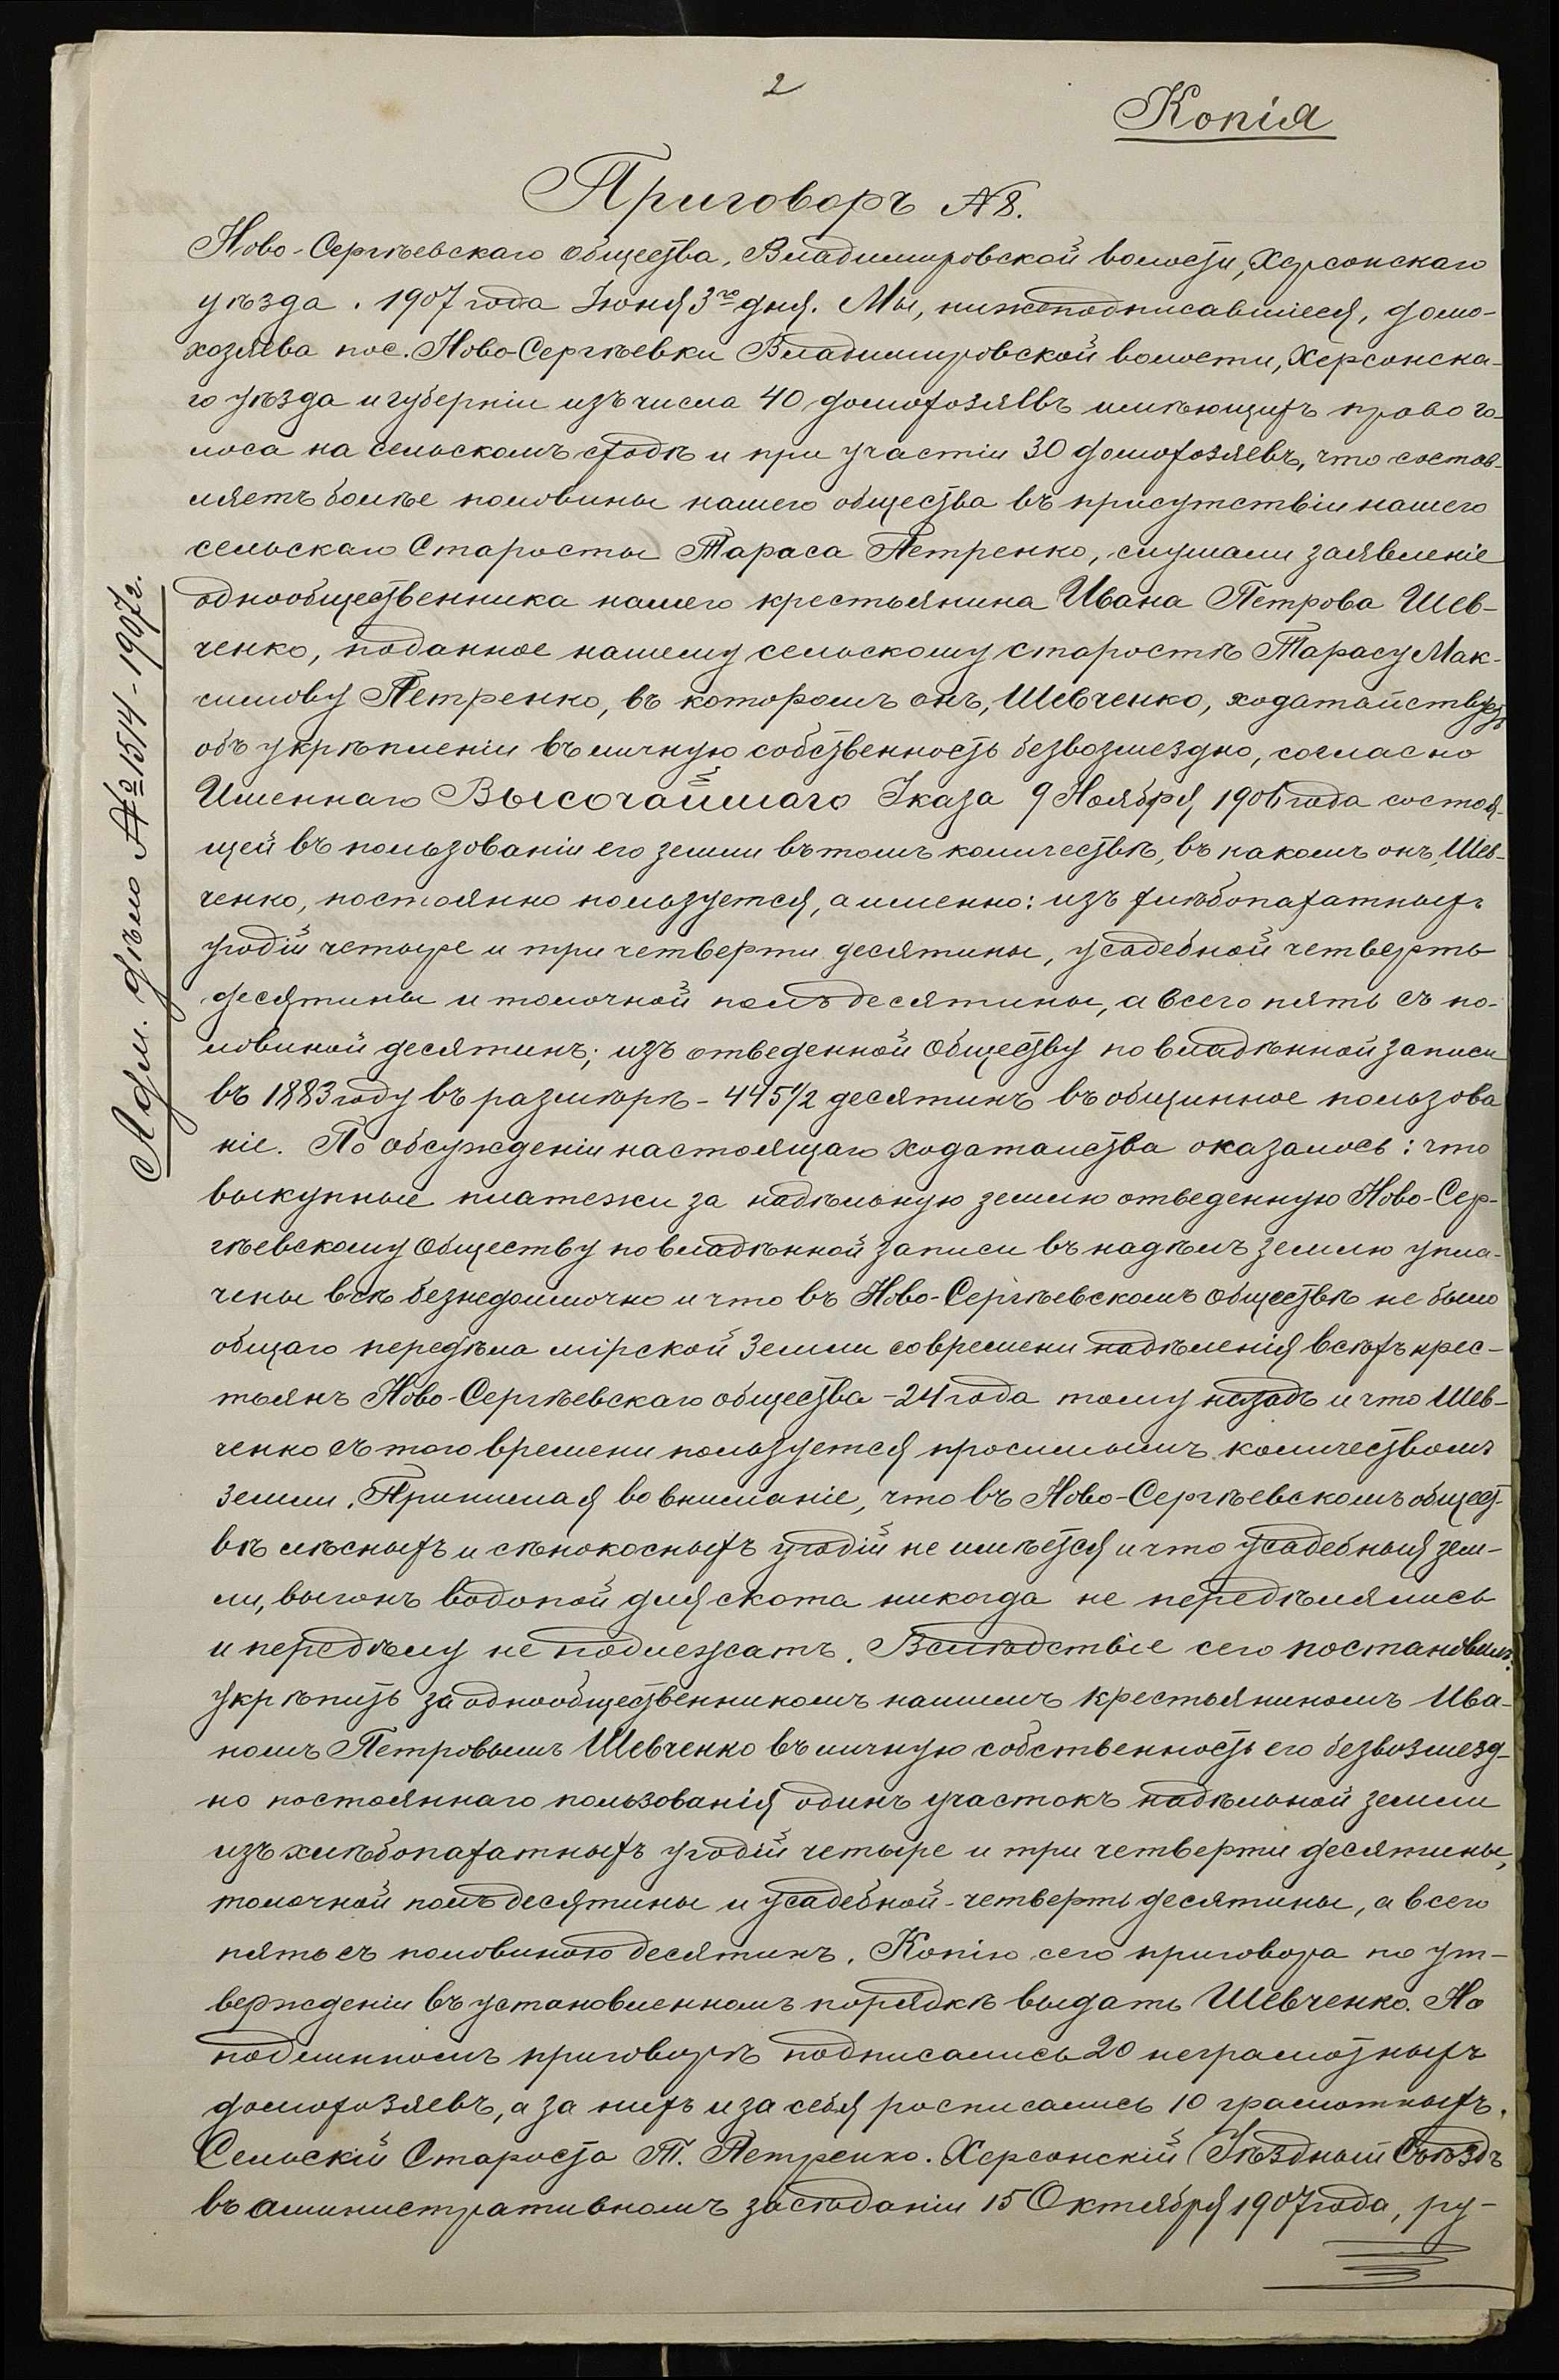 2
Копія
Приговоръ №8.
Ново-Сергѣевскаго общества, Владимировской волости, Херсонскаго
уѣзда. 1907 года Іюня 3го дня. Мы, нижеподписавшіеся, домо-
хозяева пос. Ново-Сергѣевки Владимировской волости, Херсонска-
го уѣзда и губерніи изъ числа 40 домохозяевъ имѣющихъ право го-
лоса на сельскомъ сходѣ и при участіи 30 домохозяевъ, что состав-
ляетъ болѣе половины нашего общества въ присутствіи нашего
сельскаго Старосты Тараса Петренко, слушали заявленіе
однообщественника нашего крестьянина Ивана Петрова Шев-
ченко, поданное нашему сельскому старостѣ Тарасу Мак-
симову Петренко, въ которомъ онъ, Шевченко, ходатайствуетъ
объ укрѣпленіи въ личную собственность безвозмездно, согласно
Именнаго Высочайшаго Указа 9 Ноября 1906 года состоя-
щей въ пользованіи его земли въ томъ количествѣ, въ какомъ онъ, Шев-
ченко, постоянно пользуется, а именно: изъ хлѣбопахатныхъ
угодій четыре и три четверти десятины, усадебной четверть
десятины и толочной полъ десятины, а всего пять съ по-
ловиной десятинъ; изъ отведенной Обществу по владѣнной записи
въ 1883 году въ размѣрѣ - 445 1/2 десятинъ въ общинное пользова
ніе. По обсужденіи настоящаго ходатайства оказалось: что
выкупные платежи за надѣльную землю отведенную Ново-Сер-
гѣевскому Обществу по владѣнной записи въ надѣлъ землю упла-
чены всѣ безнедоимочно и что въ Ново-Сергѣевскомъ обществѣ не было
общаго передѣла мірской земли со времени надѣленія всѣхъ крес-
тьянъ Ново-Сергѣевскаго общества - 24 года тому назадъ и что Шев-
ченко съ того времени пользуется просимымъ количествомъ
земли. Принимая во вниманіе, что въ Ново-Сергѣевскомъ общест-
вѣ лѣсныхъ и сѣнокосныхъ угодій не имѣется и что усадебныя зем-
ли, выгонъ водопой для скота никогда не передѣлялись
и передѣлу не подлежатъ. Вслѣдствіе сего постановили:
укрѣпить за однообщественникомъ нашимъ крестьяниномъ Ива-
номъ Петровымъ Шевченко въ личную собственность его безвозмезд-
но постояннаго пользованія одинъ участокъ надѣльной земли
изъ хлѣбопахатныхъ угодій четыре и три четверти десятины,
толочной полъ десятины и усадебной - четверть десятины, а всего
пять съ половиною десятинъ. Копію сего приговора по ут-
вержденіи въ установленномъ порядкѣ выдать Шевченко. На
подлинномъ приговорѣ подписались 20 неграмотныхъ
домохозяевъ, а за нихъ и за себя росписались 10 грамотныхъ.
Сельскій Староста Т. Петренко. Херсонскій Уѣздный Съѣздъ
въ аминистративномъ засѣданіи 15 Октября 1907 года, ру-
Адм. дѣло №1514-1907г.